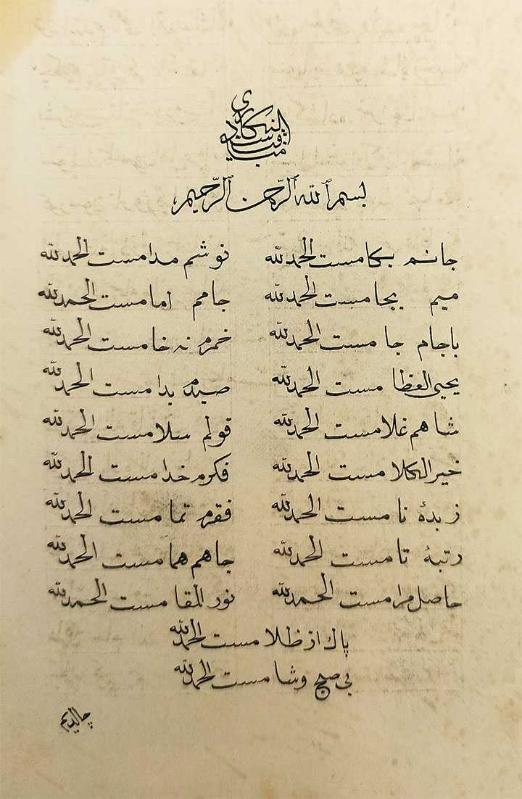 بسم الله الرحمن الرحیم
جانم بکامست الحمدلله نوشم مدامست الحمدلله
میم بجامست الحمدلله جامم امامست الحمدلله
باجام جامست الحمدلله خمرم نه خامست الحمدلله
یحیی العظامست الحمدلله صیدم بدامست الحمدلله
شاهم غلامست الحمدلله قولم سلامست الحمدلله
خیر الکلامست الحمدلله فکرم خدامست الحمدلله
زبدهٔ نامست الحمدلله فقرم تمامست الحمدلله
رتبهٔ تامست الحمدلله جاهم همامست الحمدلله
حاصل مرامست الحمدلله نور المقامست الحمدلله
پاك از ظلامست الحمدلله
بی صبح وشامست الحمدلله